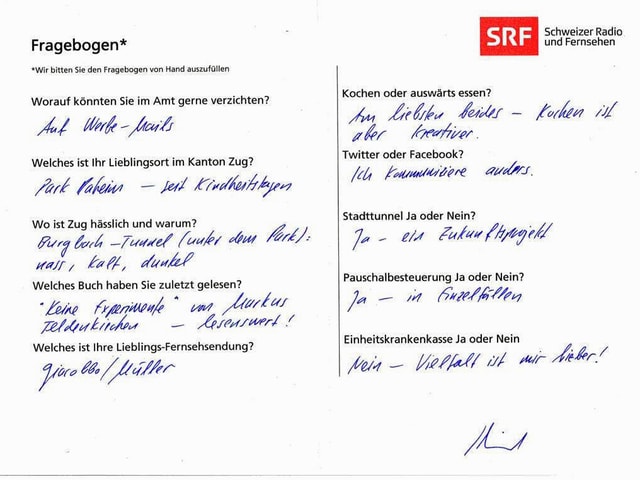 Fragebogen*
*Wir bitten Sie den Fragebogen von Hand auszufüllen
Worauf könnten Sie im Amt gerne verzichten?
Auf Werbe-Mails
Welches ist Ihr Lieblingsort im Kanton Zug?
Park Daheim – seit Kindheitstagen
Wo ist Zug hässlich und warum?
Burgbach-Tunnel (unter dem Park):
nass, kalt, dunkel
Welches Buch haben Sie zuletzt gelesen?
"Keine Experimente" von Markus
Feldenkirchen – lesenswert!
Welches ist Ihre Lieblings-Fernsehsendung?
Giacobbo/Müller
SRF Schweizer Radio
und Fernsehen
Kochen oder auswärts essen?
Am liebsten beides – Kochen ist
aber kreativer.
Twitter oder Facebook?
Ich kommuniziere anders.
Stadttunnel Ja oder Nein?
Ja – ein Zukunftsprojekt
Pauschalbesteuerung Ja oder Nein?
Ja – in Einzelfällen
Einheitskrankenkasse Ja oder Nein
Nein – Vielfalt ist mir lieber!